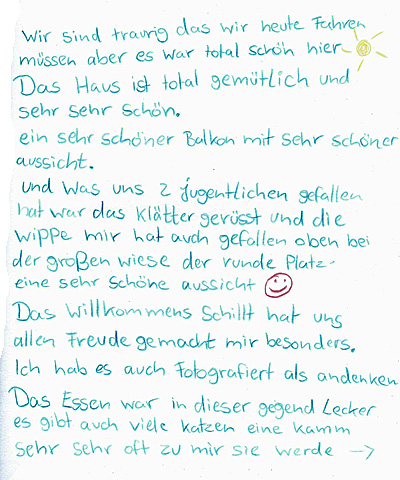 Wir sind traurig das wir heute Fahren
müssen aber es war total schön hier
Das Haus ist total gemütlich und
sehr sehr schön.
ein sehr schöner Balkon mit sehr schöner
aussicht.
und was uns 2 jugentlichen gefallen
hat war das Klätter gerüsst und die
wippe mir hat auch gefallen oben bei
der großen wiese der runde Platz.
eine sehr schöne aussicht
Das Willkommens Schillt hat uns
allen Freude gemacht mir besonders.
Ich hab es auch Fotografiert als andenken
Das Essen war in dieser gegend Lecker
es gibt auch viele katzen eine kamm
sehr sehr oft zu mir sie werde →